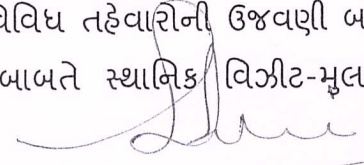 વિવિધ તહેવારોની ઉજવણી બ
બાબતે સ્થાનિક વિઝીટ-મુલ